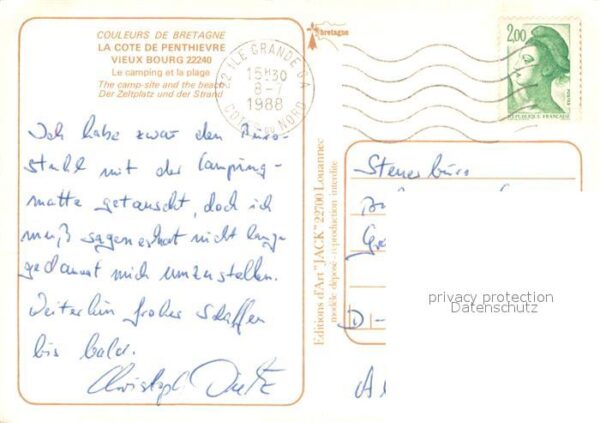 COULEURS DE BRETAGNE
LA COTE DE PENTHIEVRE
VIEUX BOURG 22240
Le camping et la plage
The camp-site and the beach
Der Zeltplatz und der Strand
bretagne
22 ILE GRANDE
15H30
8-7
1988
COTES DU NORD
2,00
REPUBLIQUE FRANÇAISE
Ich habe zwar den Büro-
stuhl mit der Camping-
matte getauscht, doch ich
muß sagen es hat nicht lange
gedauert mich umzustellen.
Weiterhin frohes Schaffen
bis bald.
Christoph Dietz
Editions d'Art "JACK" 22700 Louannec
modèle déposé - reproduction interdite
Steuerbüro
D-
privacy protection
Datenschutz